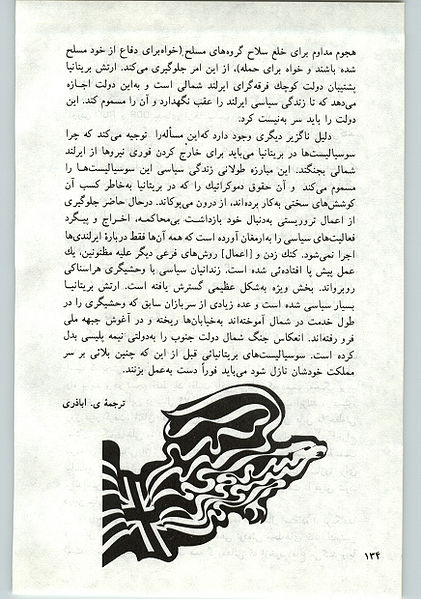 هجوم مداوم برای خلع سلاح گروه‌های مسلح (خواه‌برای دفاع از خود مسلح
شده باشند و خواه برای حمله)، از این امر جلوگیری می‌کند. ارتش بریتانیا
پشتیبان دولت کوچك فرقه‌گرای ایرلند شمالی است و به‌این دولت اجازه
می‌دهد که تا زندگی سیاسی ایرلند را عقب نگهدارد و آن را مسموم کند. این
دولت را باید سر به‌نیست کرد.
دلیل ناگزیر دیگری وجود دارد که‌این مسأله‌را توجیه می‌کند که چرا
سوسیالیست‌ها در بریتانیا می‌باید برای خارج کردن فوری نیروها از ایرلند
شمالی بجنگند. این مبارزه طولانی زندگی سیاسی این سوسیالیست‌هـا را
مسموم می‌کند و آن حقوق دموکراتیك را که در بریتانیا به‌خاطر کسب آن
کوشش‌های سختی به‌کار برده‌اند، از درون می‌پوکاند. درحال حاضر جلوگیری
از اعمال تروریستی به‌دنبال خود بازداشت بی‌محاکمـه، اخـراج و پیـگرد
فعالیت‌های سیاسی را به‌ارمغان آورده است که همه آن‌ها فقط دربارهٔ ایرلندی‌ها
اجرا نمی‌شود. کتك زدن و [اعمال] روش‌های فرعی دیگر علیه مظنونین، یك
عمل پیش پا افتاده‌ئی شده است. زندانیان سیاسی با وحشیگری هراسناکی
روبرواند. بخش ویژه به‌شکل عظیمی گسترش یافته است. ارتش بریتانیـا
بسیار سیاسی شده است و عده زیادی از سربازان سابق که وحشیگری را در
طول خدمت در شمال آموخته‌اند به‌خیابان‌ها ریخته و در آغوش جبهه ملی
فرو رفته‌اند. انعکاس جنگ شمال دولت جنوب را به‌دولتی نیمه پلیسی بدل
کرده است. سوسیالیست‌های بریتانیائی قبل از این که چنین بلائی بر سر
مملکت خودشان نازل شود می‌باید فوراً دست به‌عمل بزنند.
ترجمهٔ ی. اباذری
۱۳۴